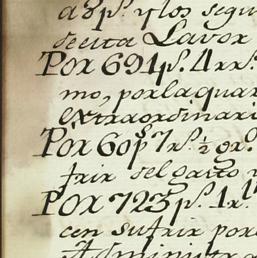 a 8 p.s y los segui
de esta Lavor
Por 691 p.s 4 rr.s
mo, por la quar
extraordinari
Por 60 p.s 7 r.s ½ gr.
frir del gasto
Por 723 p.s 1 r.l
cen sufrir por
Administra